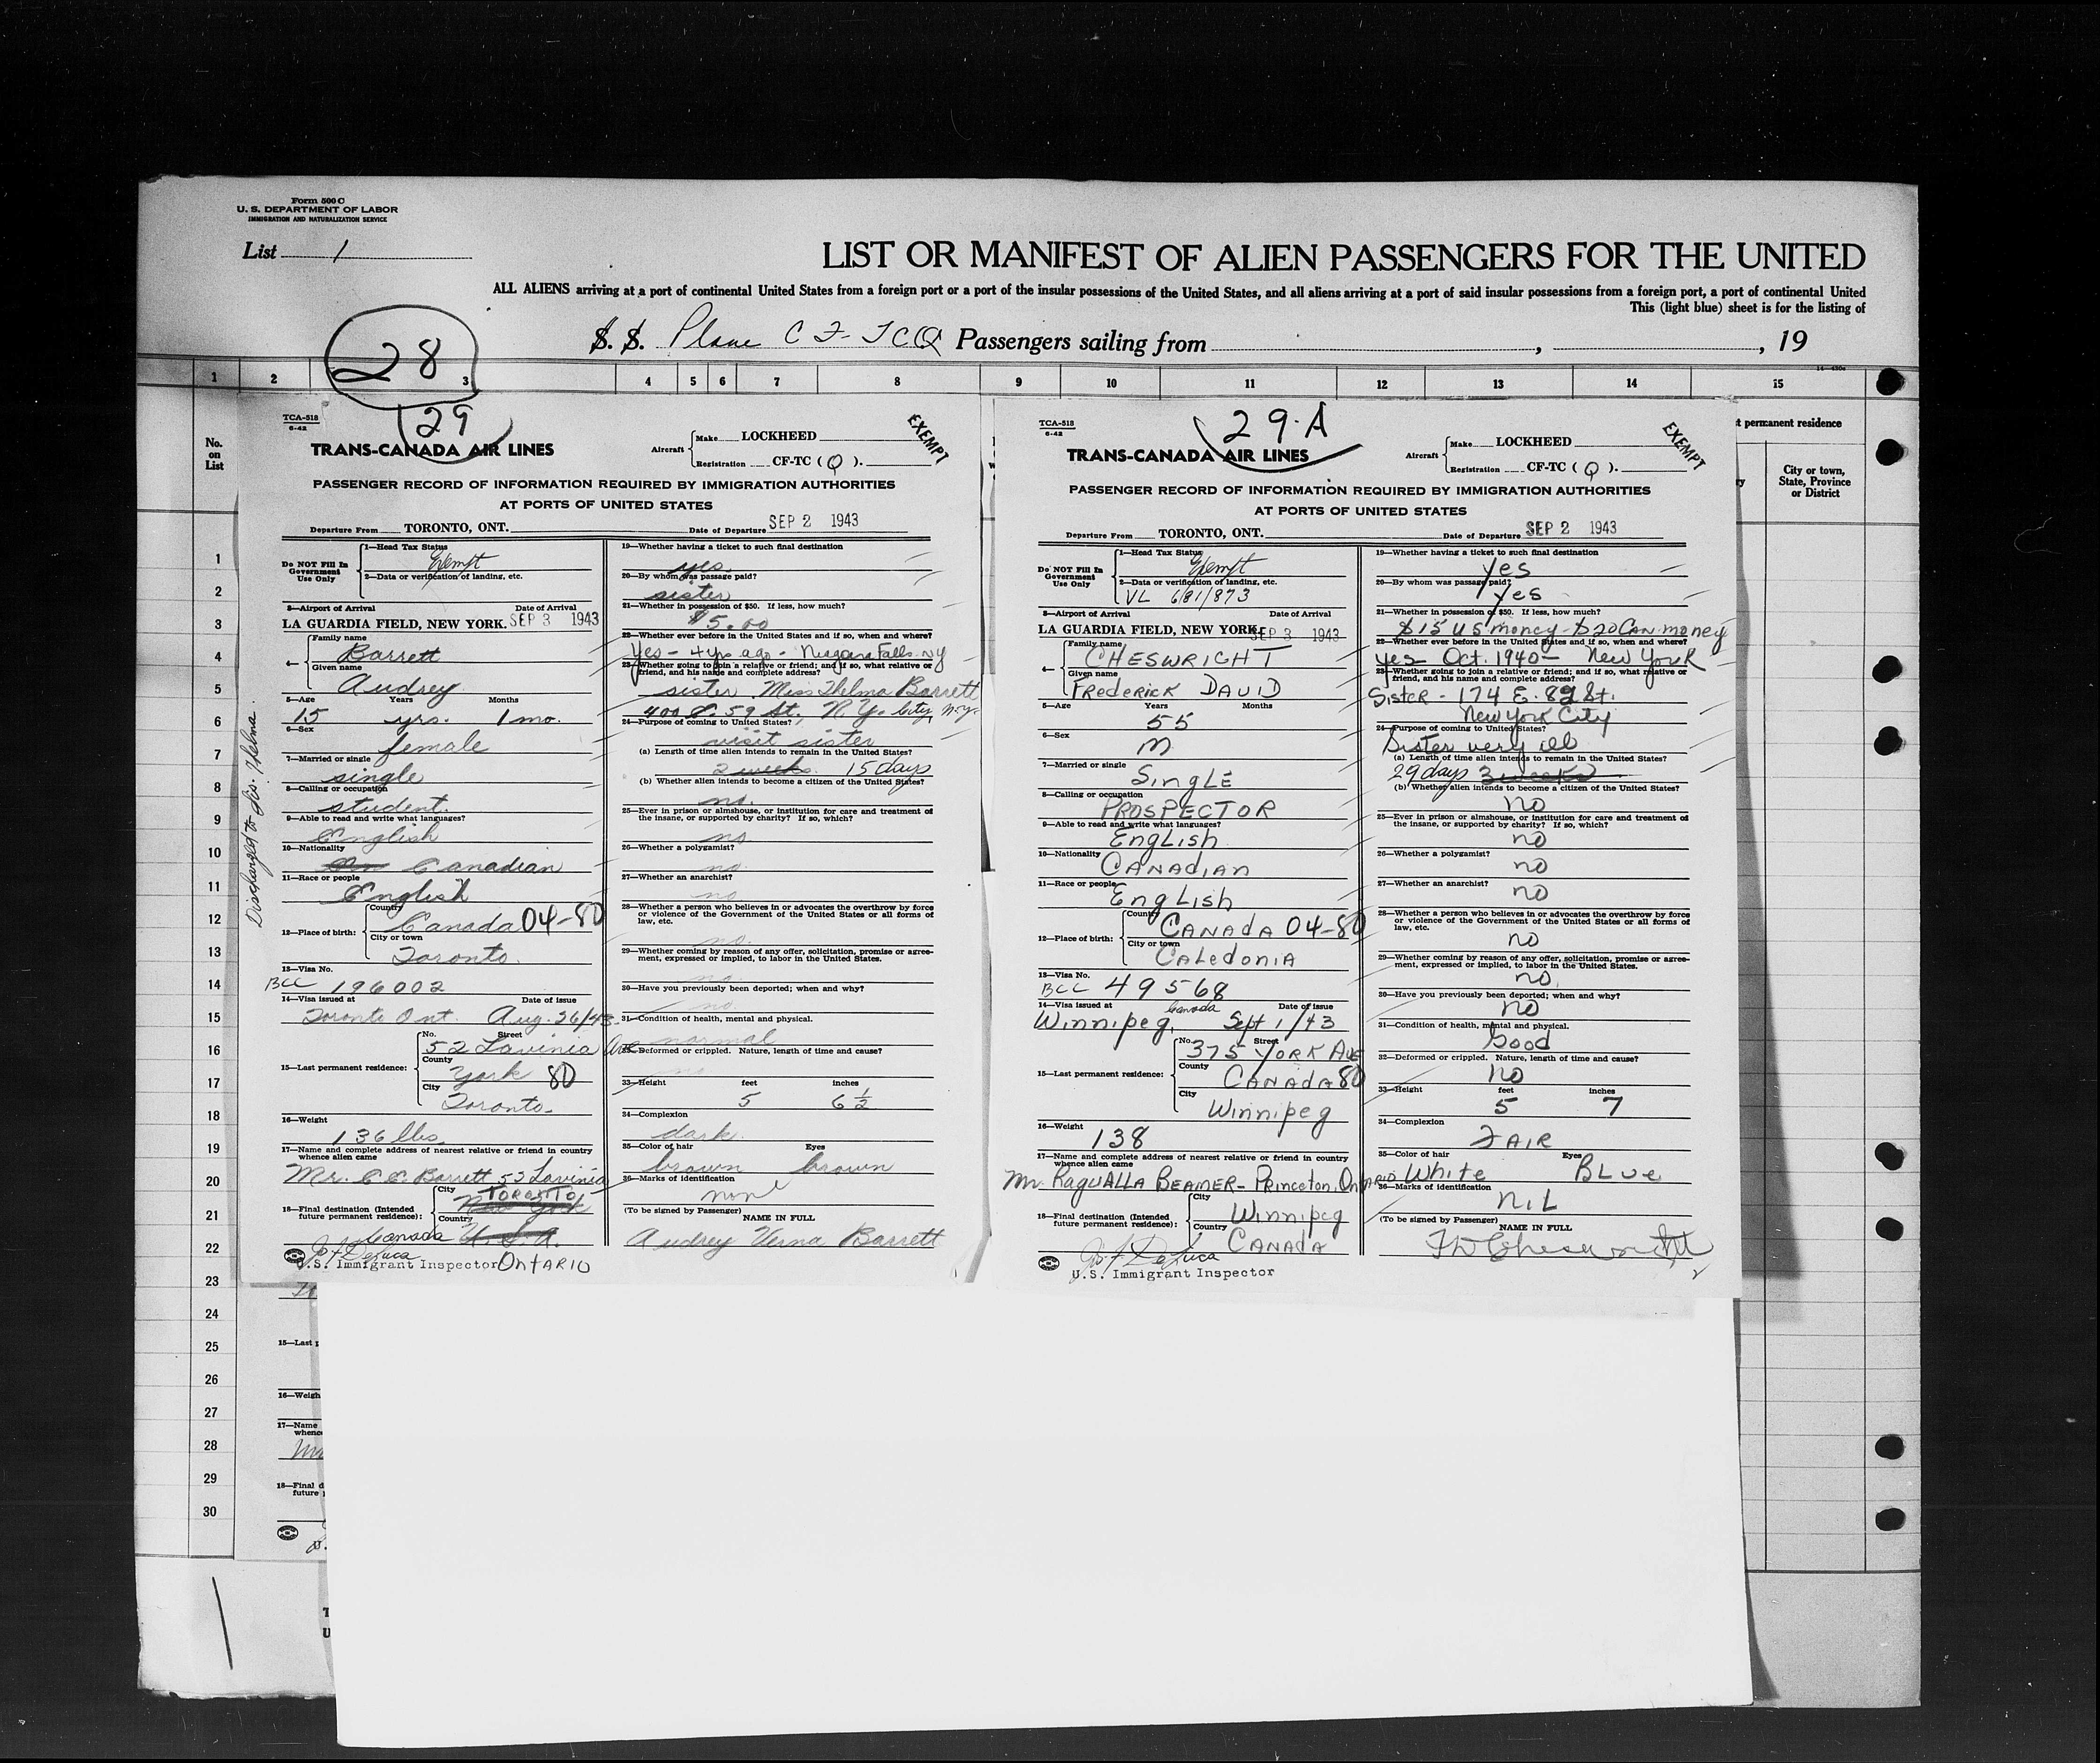 Form 500 C
U. S. DEPARTMENT OF LABOR
IMMIGRATION AND NATURALIZATION SERVICE
List 1
LIST OR MANIFEST OF ALIEN PASSENGERS FOR THE UNITED
ALL ALIENS arriving at a port of continental United States from a foreign port or a port of the insular possessions of the United States, and all aliens arriving at a port of said insular possessions from a foreign port, a port of continental United
This (light blue) sheet is for the listing of
S. S. Plane CF-TCQ Passengers sailing from , , 19
28
1 2 3 4 5 6 7 8 9 10 11 12 13 14 15
No. on List
t permanent residence
City or town, State, Province or District
1
2
3
4
5
6
7
8
9
10
11
12
13
14
15
16
17
18
19
20
21
22
23
24
25
26
27
28
29
30
TCA-518
6-42
29
EXEMPT
TRANS-CANADA AIR LINES
Aircraft Make LOCKHEED
Registration CF-TC ( Q ).
PASSENGER RECORD OF INFORMATION REQUIRED BY IMMIGRATION AUTHORITIES
AT PORTS OF UNITED STATES
Departure From TORONTO, ONT. Date of Departure SEP 2 1943
Do NOT Fill In Government Use Only
1—Head Tax Status
Exempt
2—Data or verification of landing, etc.
3—Airport of Arrival Date of Arrival
LA GUARDIA FIELD, NEW YORK. SEP 3 1943
4— Family name
Barrett
Given name
Audrey
5—Age Years Months
15 yrs. 1 mo.
6—Sex
female
7—Married or single
single
8—Calling or occupation
student.
9—Able to read and write what languages?
English
10—Nationality
Canadian
11—Race or people
English
12—Place of birth: Country
Canada 04-80
City or town
Toronto.
13—Visa No.
BCC 196002
14—Visa issued at Date of issue
Toronto Ont. Aug. 26/43.
15—Last permanent residence: No. Street
52 Lavinia Ave
County
York 80
City
Toronto.
16—Weight
136 lbs.
17—Name and complete address of nearest relative or friend in country whence alien came
Mr. C.E. Barrett 52 Lavinia
18—Final destination (Intended future permanent residence): City
TORONTO
New York
Country
Canada U.S.A.
Jos F DeLuca
U.S. Immigrant Inspector Ontario
Discharged to sis. Thelma.
19—Whether having a ticket to such final destination
yes.
20—By whom was passage paid?
sister
21—Whether in possession of $50. If less, how much?
$5.00
22—Whether ever before in the United States and if so, when and where?
Yes - 4 yrs. ago - Niagara Falls. NY
23—Whether going to join a relative or friend; and if so, what relative or friend, and his name and complete address?
sister Miss Thelma Barrett
400 E. 59 St., N.Y. City, N.Y.
24—Purpose of coming to United States?
visit sister
(a) Length of time alien intends to remain in the United States?
2 weeks. 15 days
(b) Whether alien intends to become a citizen of the United States?
no.
25—Ever in prison or almshouse, or institution for care and treatment of the insane, or supported by charity? If so, which?
no
26—Whether a polygamist?
no
27—Whether an anarchist?
no
28—Whether a person who believes in or advocates the overthrow by force or violence of the Government of the United States or all forms of law, etc.
no.
29—Whether coming by reason of any offer, solicitation, promise or agreement, expressed or implied, to labor in the United States.
no.
30—Have you previously been deported; when and why?
no
31—Condition of health, mental and physical.
normal
32—Deformed or crippled. Nature, length of time and cause?
no
33—Height feet inches
5 6 ½
34—Complexion
dark.
35—Color of hair Eyes
brown brown
36—Marks of identification
none
(To be signed by Passenger) NAME IN FULL
Audrey Verna Barrett
TCA-518
6-42
29-A
EXEMPT
TRANS-CANADA AIR LINES
Aircraft Make LOCKHEED
Registration CF-TC ( Q ).
PASSENGER RECORD OF INFORMATION REQUIRED BY IMMIGRATION AUTHORITIES
AT PORTS OF UNITED STATES
Departure From TORONTO, ONT. Date of Departure SEP 2 1943
Do NOT Fill In Government Use Only
1—Head Tax Status
Exempt
2—Data or verification of landing, etc.
VL 681/873
3—Airport of Arrival Date of Arrival
LA GUARDIA FIELD, NEW YORK. SEP 3 1943
4— Family name
CHESWRIGHT
Given name
Frederick David
5—Age Years Months
55
6—Sex
m
7—Married or single
Single
8—Calling or occupation
Prospector
9—Able to read and write what languages?
English
10—Nationality
Canadian
11—Race or people
English
12—Place of birth: Country
Canada 04-80
City or town
Caledonia
13—Visa No.
BCC 49568
14—Visa issued at Date of issue
Winnipeg, Canada Sept 1/43
15—Last permanent residence: No. Street
375 York Ave
County
Canada 80
City
Winnipeg
16—Weight
138
17—Name and complete address of nearest relative or friend in country whence alien came
Mr. Ragualla Beamer - Princeton, Ontario
18—Final destination (Intended future permanent residence): City
Winnipeg
Country
Canada
Jos F DeLuca
U.S. Immigrant Inspector
19—Whether having a ticket to such final destination
yes
20—By whom was passage paid?
yes
21—Whether in possession of $50. If less, how much?
$15 US money - $20 Can. money
22—Whether ever before in the United States and if so, when and where?
yes Oct. 1940 - New York
23—Whether going to join a relative or friend; and if so, what relative or friend, and his name and complete address?
Sister - 174 E. 82 St.
New York City
24—Purpose of coming to United States?
Sister very ill
(a) Length of time alien intends to remain in the United States?
29 days 3 weeks
(b) Whether alien intends to become a citizen of the United States?
no
25—Ever in prison or almshouse, or institution for care and treatment of the insane, or supported by charity? If so, which?
no
26—Whether a polygamist?
no
27—Whether an anarchist?
no
28—Whether a person who believes in or advocates the overthrow by force or violence of the Government of the United States or all forms of law, etc.
no
29—Whether coming by reason of any offer, solicitation, promise or agreement, expressed or implied, to labor in the United States.
no.
30—Have you previously been deported; when and why?
no
31—Condition of health, mental and physical.
Good
32—Deformed or crippled. Nature, length of time and cause?
no
33—Height feet inches
5 7
34—Complexion
Fair
35—Color of hair Eyes
White Blue
36—Marks of identification
nil
(To be signed by Passenger) NAME IN FULL
F D Cheswright
15—Last p
16—Weigh
17—Name
whence
18—Final d
future